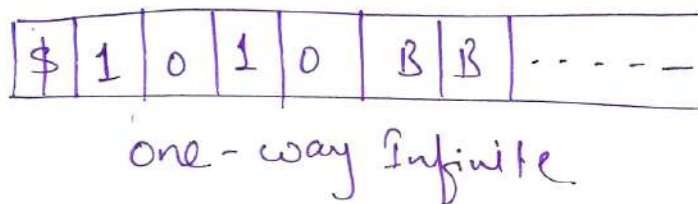 $ 1 0 1 0 B B - - - - -
one-way Infinite